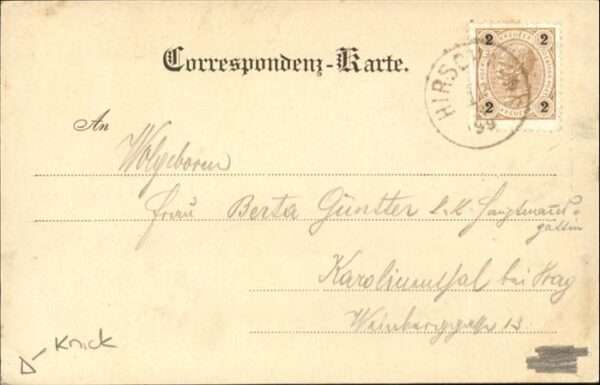 Correspondenz-Karte.
2 2
2 2
HIRSCH
99
An
Wolgeboren
Frau Berta Güntter k. k. Hauptmanns-
gattin
Karolinenthal bei Prag
Weinberggasse 13
Knick